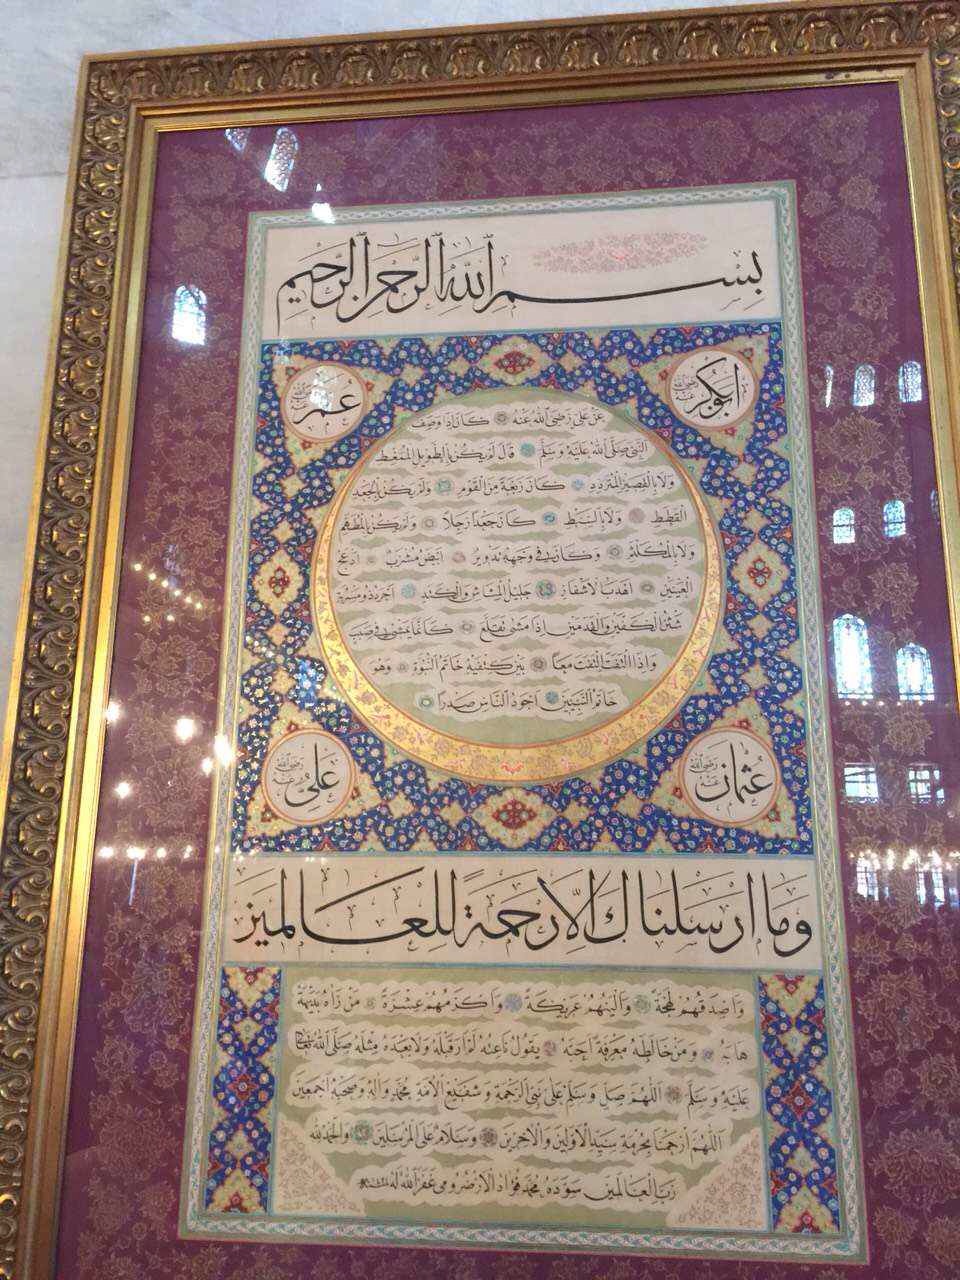 بِسْمِ اللّٰهِ الرَّحْمٰنِ الرَّحِيمِ
ابوبكر رضى الله عنه
عمر رضى الله عنه
عَنْ عَلِىٍّ رَضِىَ اللّٰهُ عَنْهُ كَانَ اِذَا وَصَفَ
النَّبِىَّ صَلَّى اللّٰهُ عَلَيْهِ وَسَلَّمَ قَالَ لَمْ يَكُنْ بِالطَّوِيلِ الْمُمَّغِطِ
وَلَا بِالْقَصِيرِ الْمُتَرَدِّدِ كَانَ رَبْعَةً مِنَ الْقَوْمِ وَلَمْ يَكُنْ بِالْجَعْدِ
الْقَطَطِ وَلَا بِالسَّبِطِ كَانَ جَعْدًا رَجِلًا وَلَمْ يَكُنْ بِالْمُطَهَّمِ
وَلَا بِالْمُكَلْثَمِ وَكَانَ فِى وَجْهِهِ تَدْوِيرٌ اَبْيَضُ مُشْرَبٌ اَدْعَجُ
الْعَيْنَيْنِ اَهْدَبُ الْاَشْفَارِ جَلِيلُ الْمُشَاشِ وَالْكَتَدِ اَجْرَدُ ذُو مَسْرُبَةٍ
شَثْنُ الْكَفَّيْنِ وَالْقَدَمَيْنِ اِذَا مَشٰى تَقَلَّعَ كَاَنَّمَا يَمْشِى فِى صَبَبٍ
وَاِذَا الْتَفَتَ الْتَفَتَ مَعًا بَيْنَ كَتِفَيْهِ خَاتَمُ النُّبُوَّةِ وَهُوَ
خَاتَمُ النَّبِيِّينَ اَجْوَدُ النَّاسِ صَدْرًا
عثمان رضى الله عنه
على رضى الله عنه
وَمَا اَرْسَلْنَاكَ اِلَّا رَحْمَةً لِلْعَالَمِينَ
وَاَصْدَقُهُمْ لَهْجَةً وَاَلْيَنُهُمْ عَرِيكَةً وَاَكْرَمُهُمْ عِشْرَةً مَنْ رَاٰهُ بَدِيهَةً
هَابَهُ وَمَنْ خَالَطَهُ مَعْرِفَةً اَحَبَّهُ يَقُولُ نَاعِتُهُ لَمْ اَرَ قَبْلَهُ وَلَا بَعْدَهُ مِثْلَهُ صَلَّى اللّٰهُ تَعَالٰى
عَلَيْهِ وَسَلَّمَ اَللّٰهُمَّ صَلِّ وَسَلِّمْ عَلٰى نَبِىِّ الرَّحْمَةِ وَشَفِيعِ الْاُمَّةِ مُحَمَّدٍ وَاٰلِهِ وَصَحْبِهِ اَجْمَعِينَ
اَللّٰهُمَّ ارْحَمْنَا بِحُرْمَةِ سَيِّدِ الْاَوَّلِينَ وَالْاٰخِرِينَ وَسَلَامٌ عَلَى الْمُرْسَلِينَ وَالْحَمْدُ لِلّٰهِ
رَبِّ الْعَالَمِينَ سَوَّدَهُ مُحَمَّد فُؤَاد الْاَرْضُرُومِى غَفَرَ اللّٰهُ لَهُ